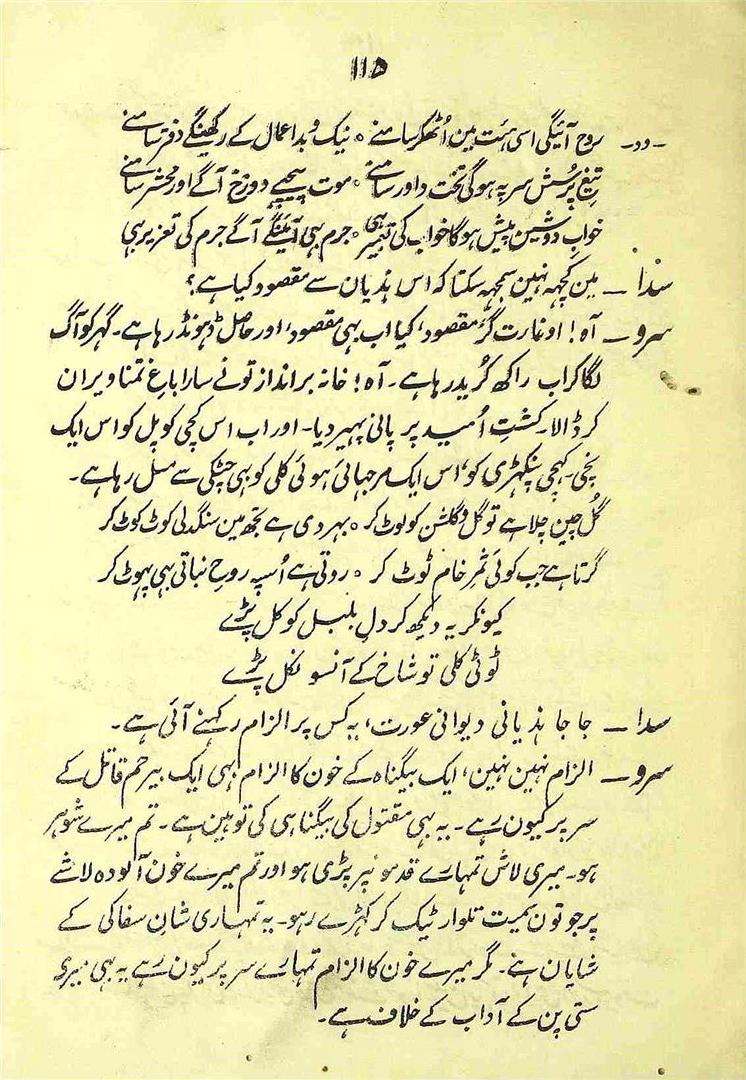 ۱۱۵
-دو- روح آئیگی اسی ہئت مین اُٹھکر سامنے ٭ نیک و بد اعمال کے رکھینگے دفتر سامنے
تیغِ پُرسش سر پہ ہوگی تخت داور سامنے ٭ موت پیچھے دوزخ آگے اور محشر سامنے
خوابِ دوشین پیش ہوگا خواب کی تعبیر بہی ٭ جرم بہی آئینگے آگے جرم کی تعزیر بہی
سدا — مین کچہہ نہین سمجہہ سکتا کہ اس ہذیان سے مقصود کیا ہے؟
سرو — آہ! او غارت گرِ مقصود، کیا اب بہی مقصود، اور حاصل ڈہونڈ رہا ہے۔ گہر کو آگ
لگا کر اب راکھ کُرید رہا ہے۔ آہ! خانہ برانداز تونے سارا باغِ تمنا ویران
کر ڈالا۔ کشتِ اُمید پر پانی پہیر دیا۔ اور اب اس کچی کوپل کو اس ایک
بچی کہچی پنکہڑی کو، اس ایک مرجہائی ہوئی کلی کو بہی چٹکی سے مسل رہا ہے۔
گُل چین چلا ہے تو گل و گلشن کو لوٹ کر ٭ بہردی ہے تجھ مین سنگدلی کوٹ کوٹ کر
گرتا ہے جب کوئی ثمرِ خام ٹوٹ کر ٭ روتی ہے اُسپہ روحِ نباتی بہی پہوٹ کر
کیونکر یہ دیکھ کر دلِ بلبل کو کل پڑے
ٹوٹی کلی تو شاخ کے آنسو نکل پڑے
سدا — جا جا ہذیانی دیوانی عورت، یہ کس پر الزام رکہنے آئی ہے۔
سرو — الزام نہین نہین، ایک بیگناہ کے خون کا الزام بہی ایک بیرحم قاتل کے
سر پر کیون رہے۔ یہ بہی مقتول کی بیگناہی کی توہین ہے۔ تم میرے شوہر
ہو۔ میری لاش تمہارے قدمونپر پڑی ہو اور تم میرے خون آلودہ لاشے
پر جوتون سمیت تلوار ٹیک کر کہڑے رہو۔ یہ تمہاری شانِ سفاکی کے
شایان ہے۔ مگر میرے خون کا الزام تمہارے سر پر کیون رہے یہ بہی میری
ستی پن کے آداب کے خلاف ہے۔